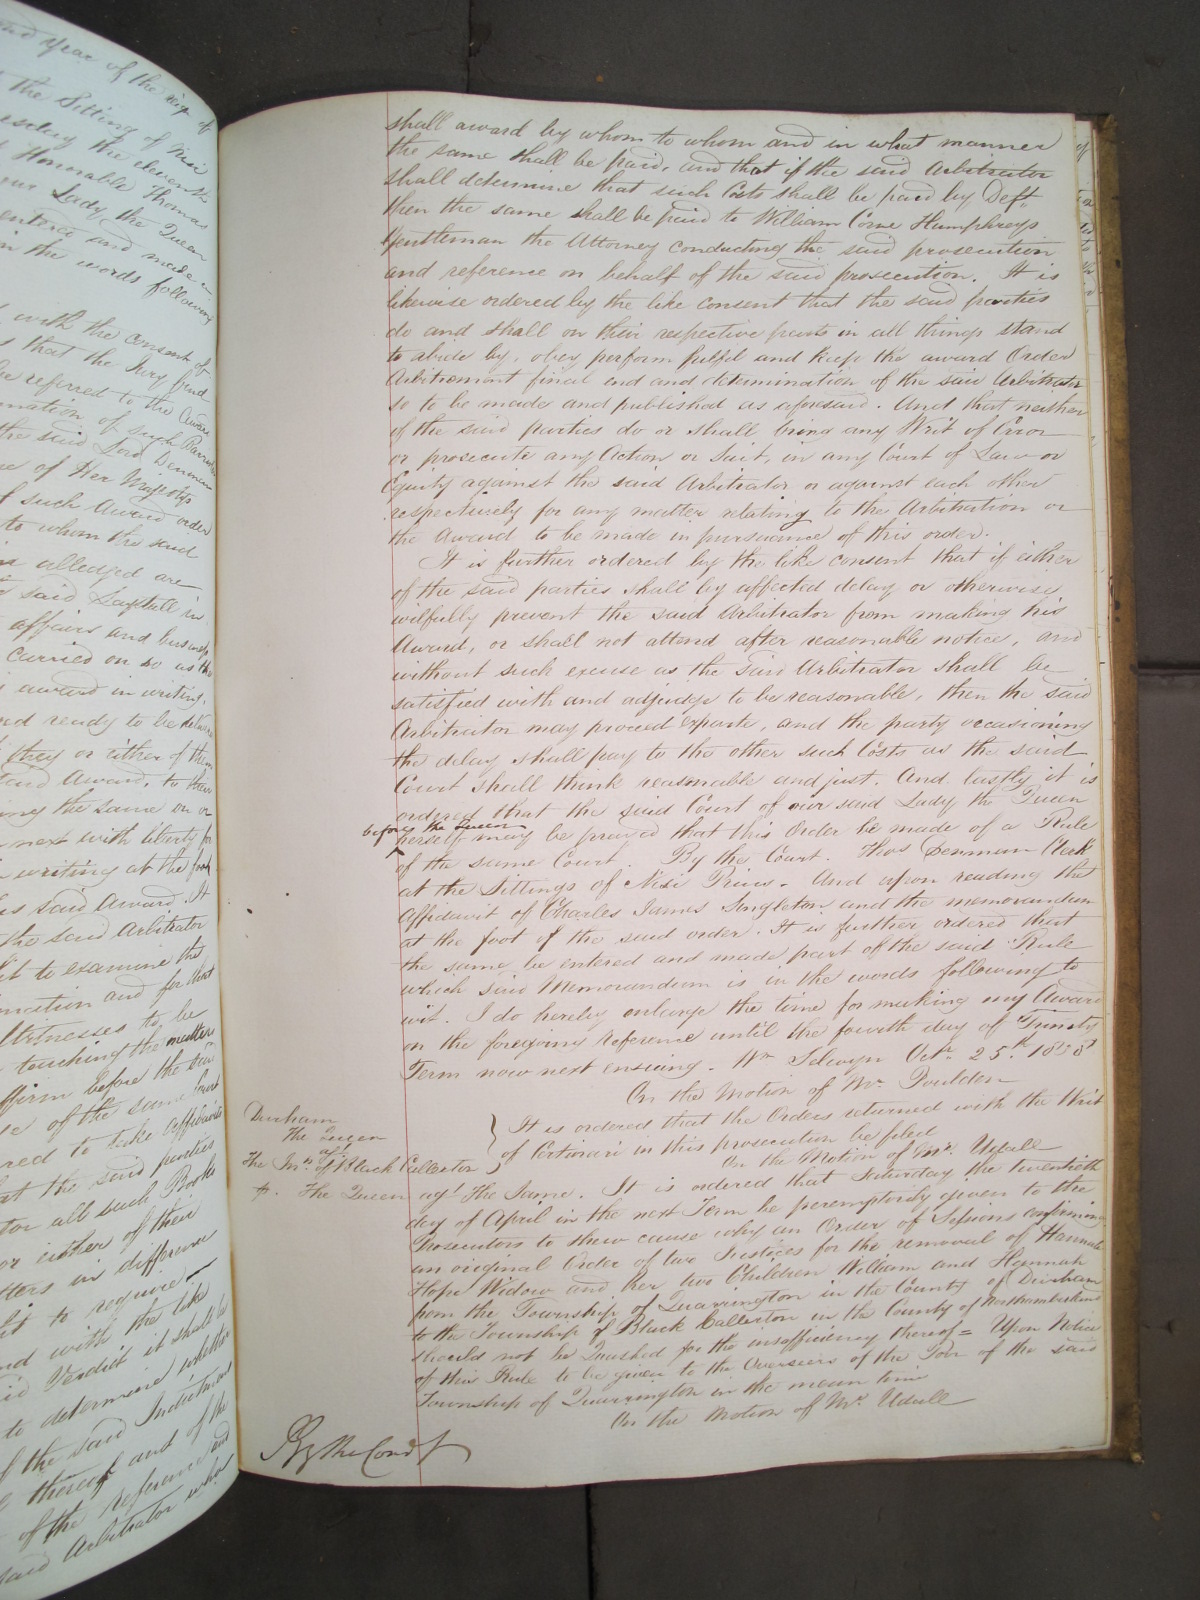 and year of the reign of
the Sitting of Nisi
the eleventh
Honorable Thomas
our Lady the Queen
entered and made
in the words following
with the consent of
that the Jury find
be referred to the Award
of such Barrister
the said Lord Denman
of Her Majestys
of such Award order
to whom the said
alledged are
said in
affairs and business
carried on so as the
award in writing
and ready to be delivered
they or either of them
said Award, to
the same on or
next with liberty for
writing at the foot
his said Award. It
the said Arbitrator
fit to examine the
and for that
Witnesses to be
touching the matters
affirm before the said
of the same Court
to take affidavits
that the said parties
all such Books
or either of their
matters in difference
fit to require
and with the like
said Verdict it shall be
to determine whether
of the said Indictment
thereof and of the
of the reference and
said Arbitrator who
shall award by whom to whom and in what manner
the same shall be paid, and that if the said Arbitrator
shall determine that such Costs shall be paid by Deft
then the same shall be paid to William Corne Humphreys
Gentleman the Attorney conducting the said prosecution
and reference on behalf of the said prosecution. It is
likewise ordered by the like consent that the said parties
do and shall on their respective parts in all things stand
to abide by, obey perform fulfil and keep the award Order
Arbitrement final end and determination of the said Arbitrator
so to be made and published as aforesaid. And that neither
of the said parties do or shall bring any Writ of Error
or prosecute any Action or Suit, in any Court of Law or
Equity against the said Arbitrator or against each other
respectively for any matter relating to the Arbitration or
the Award to be made in pursuance of this order.
It is further ordered by the like consent that if either
of the said parties shall by affected delay or otherwise
wilfully prevent the said Arbitrator from making his
Award, or shall not attend after reasonable notice, and
without such excuse as the said Arbitrator shall be
satisfied with and adjudge to be reasonable, then the said
Arbitrator may proceed exparte, and the party occasioning
the delay shall pay to the other such Costs as the said
Court shall think reasonable and just. And lastly it is
ordered that the said Court of our said Lady the Queen
before the Queen
herself may be prayed that this Order be made of a Rule
of the same Court. By the Court. Thos Denman Clerk
at the Sittings of Nisi Prius. And upon reading the
Affidavit of Charles James Singleton and the memorandum
at the foot of the said order. It is further ordered that
the same be entered and made part of the said Rule
which said Memorandum is in the words following to
wit. I do hereby enlarge the time for making my Award
on the foregoing reference until the fourth day of Trinity
Term now next ensuing. Wm Selwyn Octr 25th 1838
On the Motion of Mr. Poulden
Durham
The Queen
agt
The Inhs of Black Callerton
It is ordered that the Orders returned with the Writ
of Certiorari in this prosecution be filed
On the Motion of Mr. Udall
The Queen agt The Same. It is ordered that Saturday the twentieth
day of April in the next Term be peremptorily given to the
Prosecutors to shew cause why an Order of Sessions confirming
an original Order of two Justices for the removal of Hannah
Hope Widow and her two Children William and Hannah
from the Township of Quarrington in the County of Durham
to the Township of Black Callerton in the County of Northumberland
should not be Quashed for the insufficiency thereof = Upon Notice
of this Rule to be given to the Overseers of the Poor of the said
Township of Quarrington in the mean time
On the Motion of Mr. Udall
By the Court